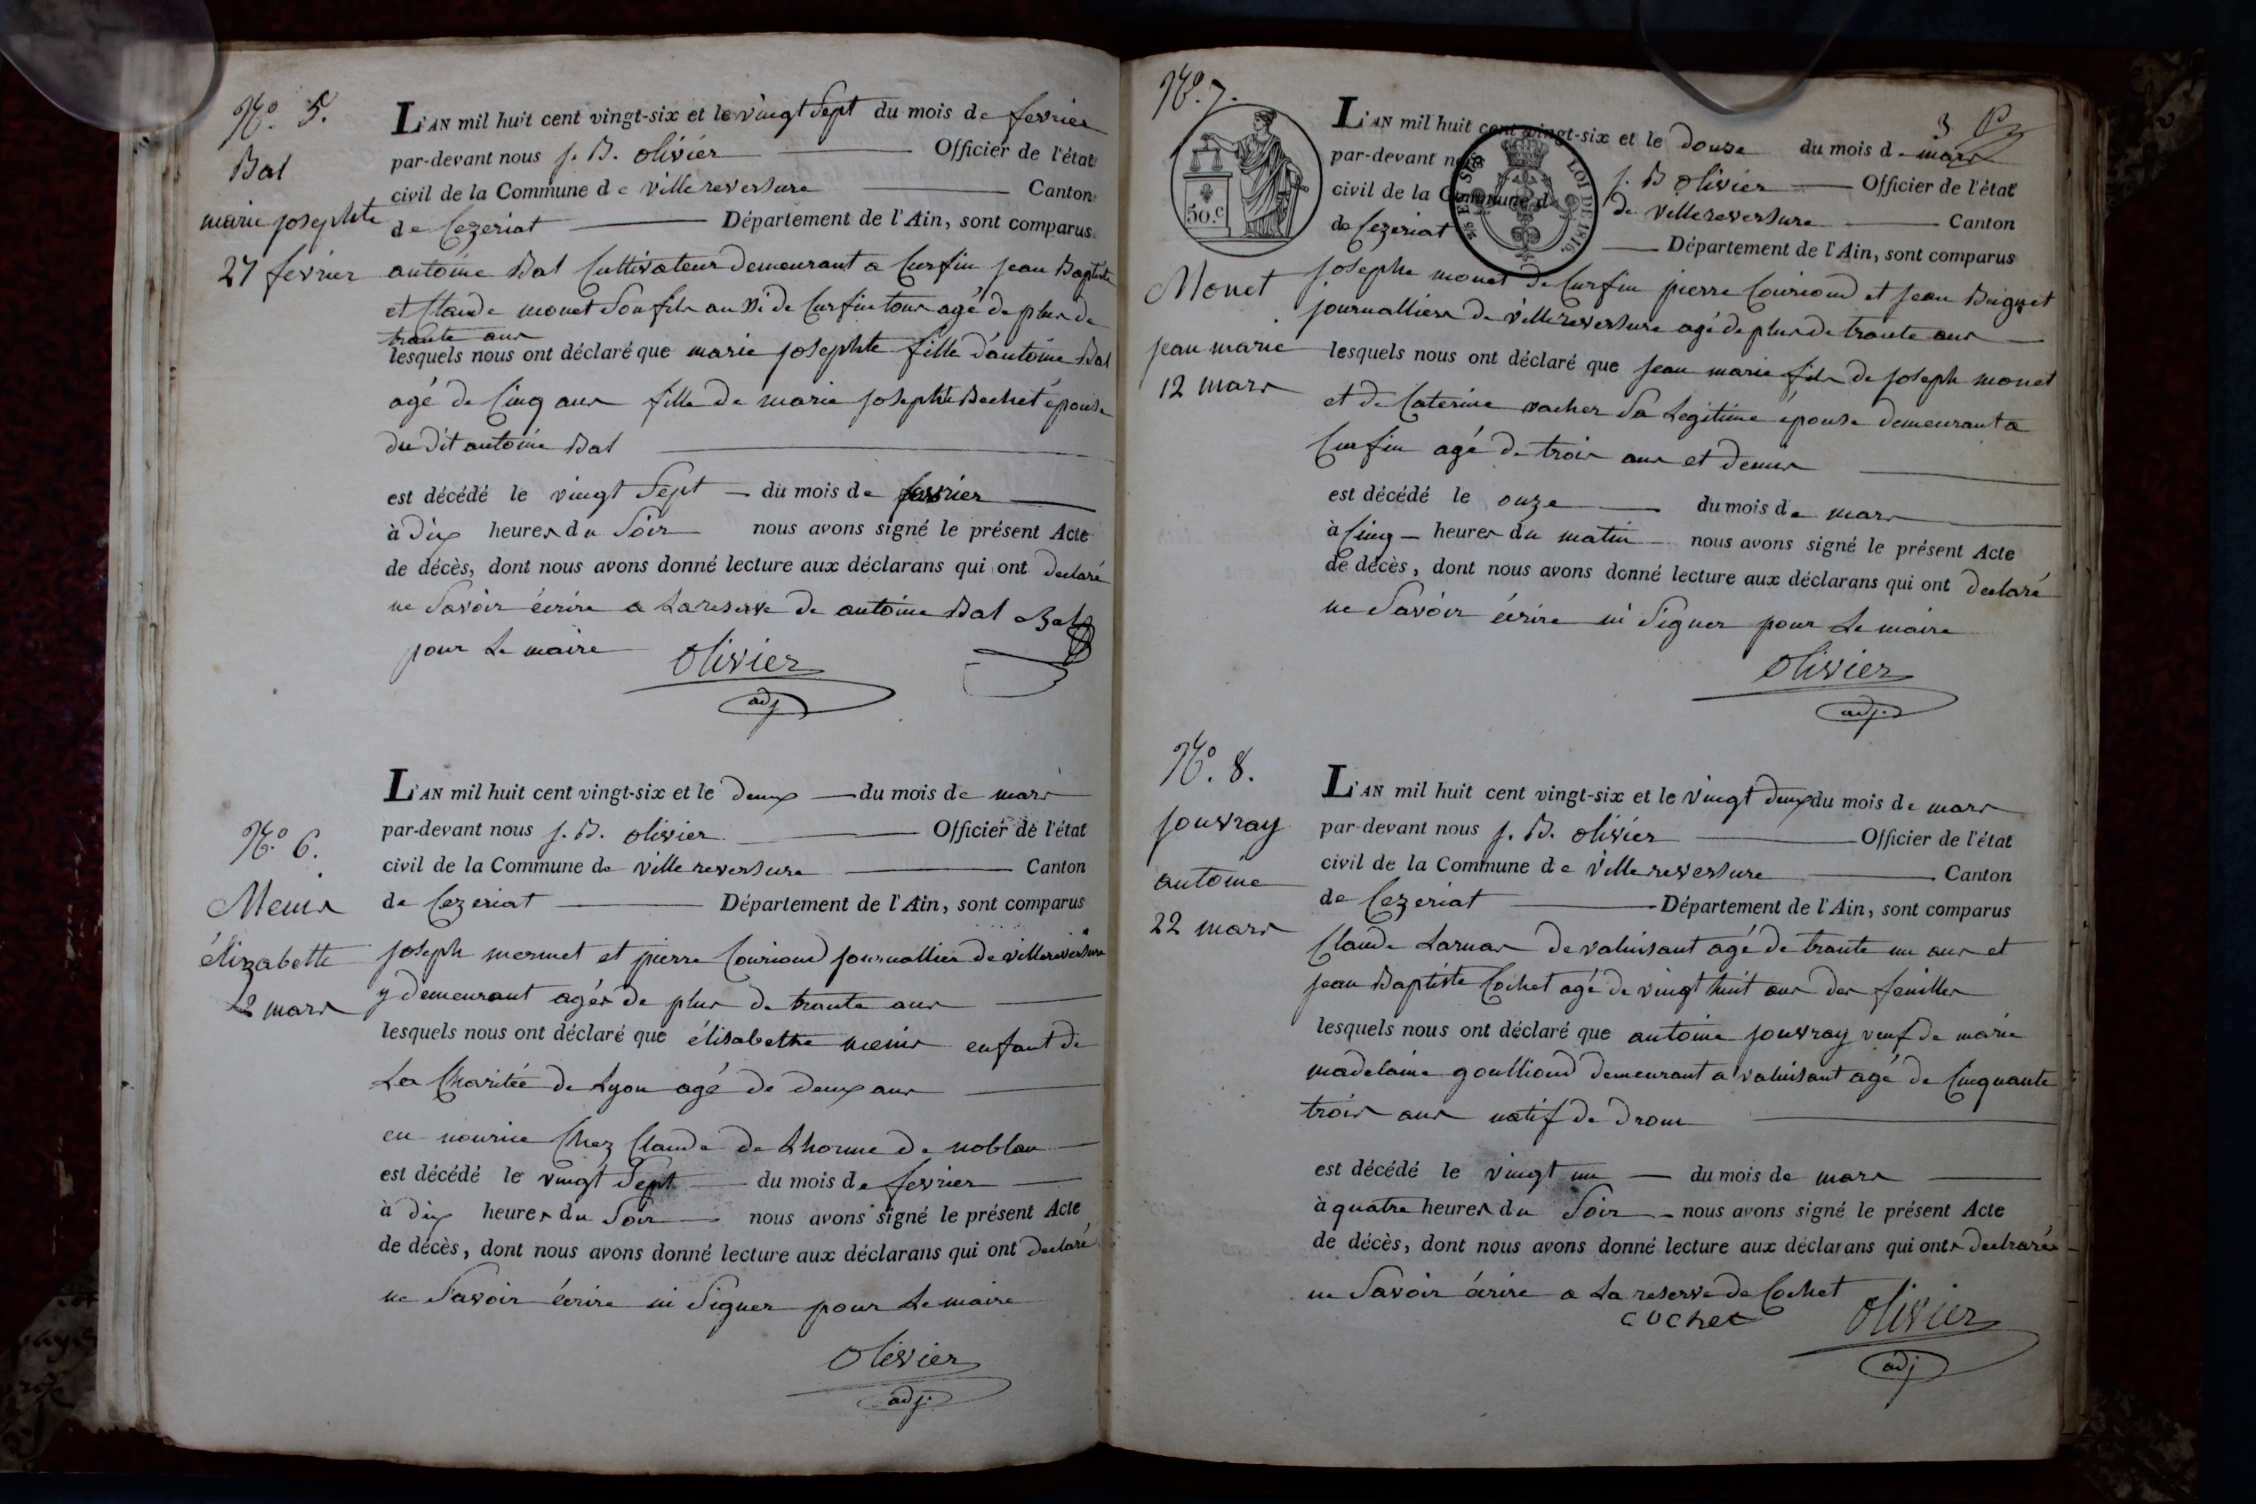 N.º 5.
Bal
marie josephte
27 fevrier
L'AN mil huit cent vingt-six et le vingt Sept du mois de fevrier
par-devant nous j. B. olivier Officier de l'état
civil de la Commune de villereversure Canton
de Cezeriat Département de l'Ain, sont comparus
antoine Bal Cultivateur demeurant a Curfin jean Baptiste
et Claude monet Son fils au di de Curfin tous agé de plus de
trante ans
lesquels nous ont déclaré que marie josephte fille d'antoine Bal
agé de Cinq ans fille de marie josephte Bechet épouse
du dit antoine Bal
est décédé le vingt Sept du mois de fevrier
à dix heures du Soir nous avons signé le présent Acte
de décès, dont nous avons donné lecture aux déclarans qui ont declaré
ne Savoir écrire a La reserve de antoine Bal Bal
pour Le maire olivier
adj
N.º 6.
Menis
élizabette
2 mars
L'AN mil huit cent vingt-six et le deux du mois de mars
par-devant nous j. B. olivier Officier de l'état
civil de la Commune de villereversure Canton
de Cezeriat Département de l'Ain, sont comparus
joseph mermet et pierre Couriond journallier de villereversure
y demeurant agés de plus de trante ans
lesquels nous ont déclaré que élisabethe menis enfant de
La Charitée de Lyon agé de deux ans
en nourice Chez Claude de Lhorme de noblan
est décédé le vingt Sept du mois de fevrier
à dix heures du Soir nous avons signé le présent Acte
de décès, dont nous avons donné lecture aux déclarans qui ont declaré
ne Savoir écrire ni Signer pour Le maire
olivier
adj.
N.º 7.
3
50.c
25 EN SUS
LOI DE 1816.
Monet
jean marie
12 mars
L'AN mil huit cent vingt-six et le douze du mois de mars
par-devant nous j. B olivier Officier de l'état
civil de la Commune de de villereversure Canton
de Cezeriat Département de l'Ain, sont comparus
josephe monet de Curfin pierre Couriond et jean Buignet
journalliers de villereversure agé de plus de trante ans
lesquels nous ont déclaré que jean marie fils de joseph monet
et de Caterine vacher Sa Legitime épouse demeurant a
Curfin agé de trois ans et demis
est décédé le onze du mois de mars
à Cinq heures du matin nous avons signé le présent Acte
de décès, dont nous avons donné lecture aux déclarans qui ont declaré
ne Savoir écrire ni Signer pour Le maire
olivier
adj.
N.º 8.
jouvray
antoine
22 mars
L'AN mil huit cent vingt-six et le vingt deux du mois de mars
par-devant nous j. B. olivier Officier de l'état
civil de la Commune de villereversure Canton
de Cezeriat Département de l'Ain, sont comparus
Claude Larnar de valuisant agé de trante un ans et
jean Baptiste Cochet agé de vingt huit ans des feuilles
lesquels nous ont déclaré que antoine jouvray veuf de marie
madelaine goulliond demeurant a valuisant agé de Cinquante
trois ans natif de drom
est décédé le vingt un du mois de mars
à quatre heures du Soir nous avons signé le présent Acte
de décès, dont nous avons donné lecture aux déclarans qui ont declarés
ne Savoir écrire a La reserve de Cochet
cochet olivier
adj